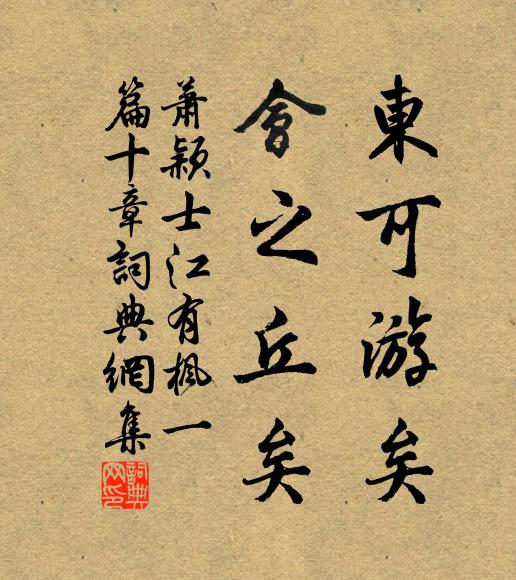 東可游矣
會之丘矣
蕭穎士江有楓一
篇十章詞典網集
詞典
网印